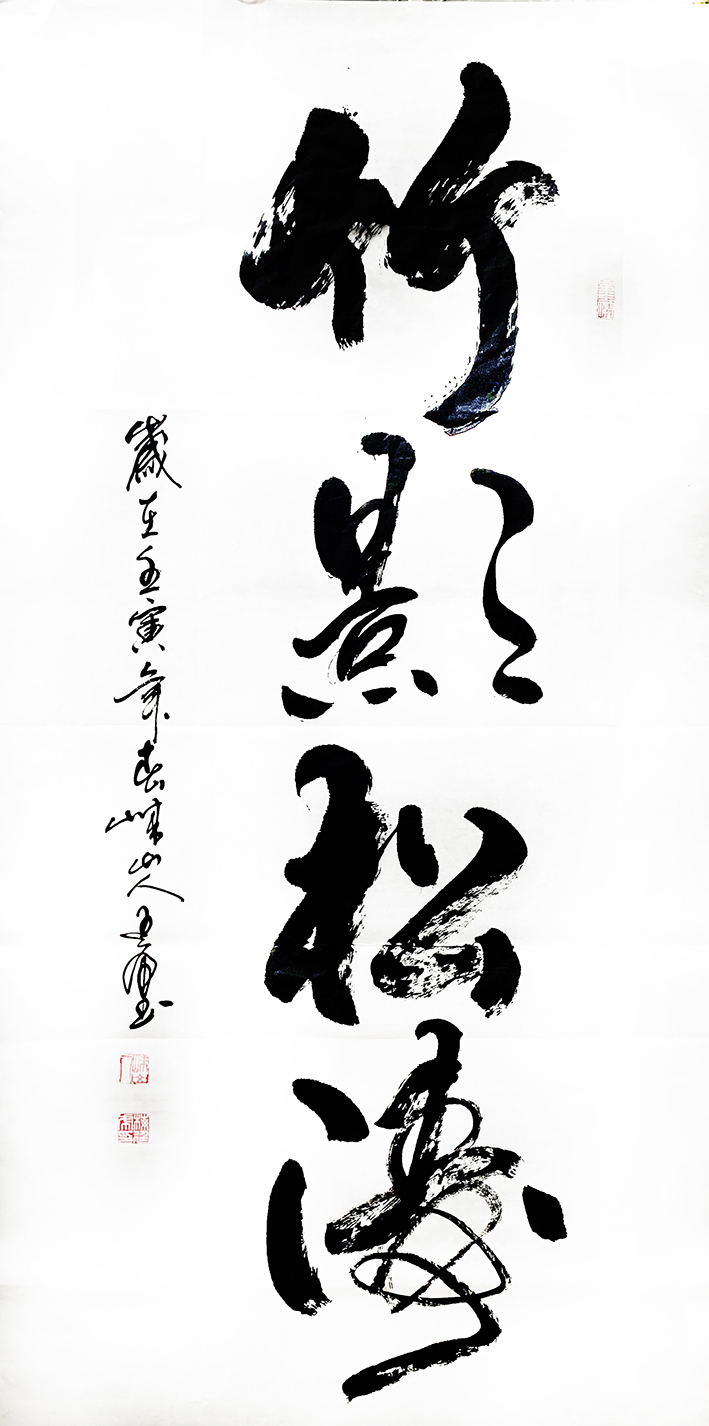 竹影松濤
歲在壬寅年春嵊山人